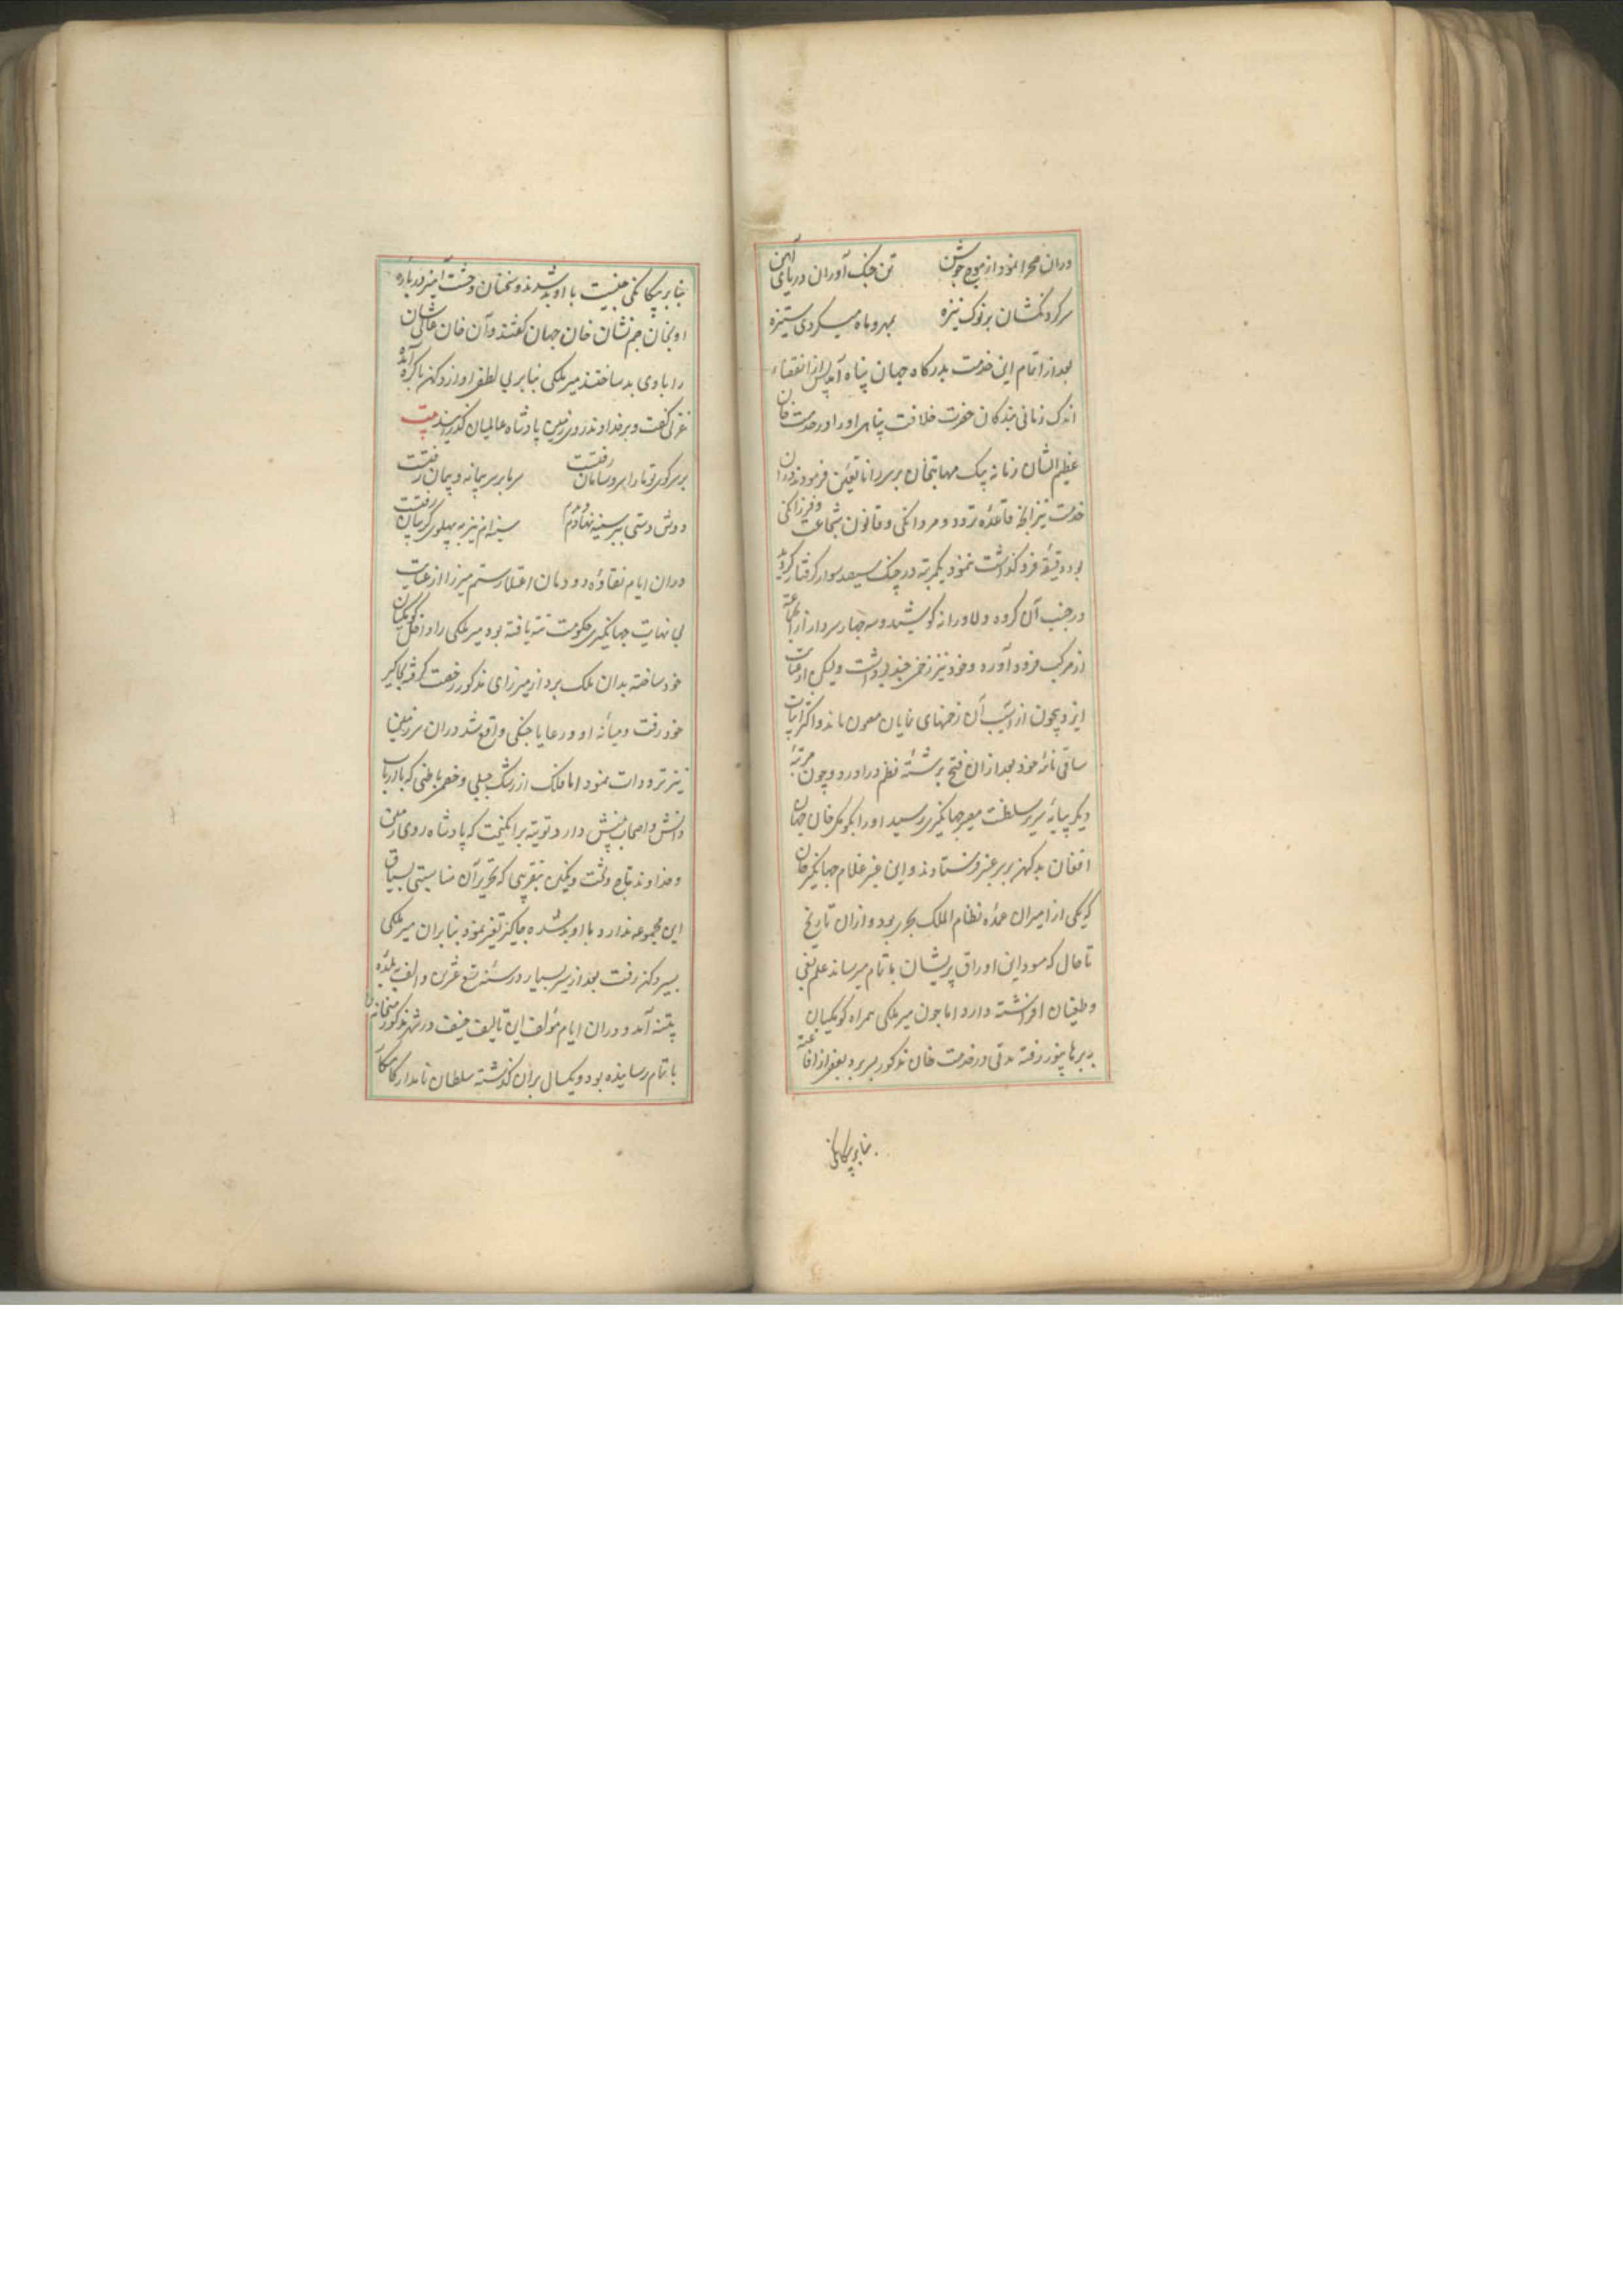 دران صحرا نمود از موج جوشن تن جنگ آوران دریای آهن
سر گردنکشان بر نوک نیزه بمهر و ماه میکردی ستیزه
بعد از اتمام این خدمت بدرگاه جهان پناه آمد پس از انقضاء
اندک زمانی بندگان حضرت خلافت پناهی او را در خدمت خان
عظیم الشان زمانه بیک مهابتخان بر سر رانا تعین فرمودند دران
خدمت نیز انچه قاعده تردد و مردانگی و قانون شجاعت و فرزانگی
بود دقیقه فرو گذاشت ننمود یکمرتبه در جنگ سیصد سوار گرفتار گردید
در جنب آن گروه دلاورانه کوشید و سه چهار سردار از آن جماعه
از مرکب فرود آورده و خود نیز زخمی چند برداشت ولیکن از عنایت
ایزد بیچون از آسیب آن زخمهای نمایان مصون ماند و اکثر ابیات
ساقی نامه خود بعد ازان فتح برشته نظم در آورد و چون مرتبه
دیگر بپایه سریر سلطنت مصیر جهانگیری رسید او را بکومک خان جهان
افغان بدکهن بر سر عنبر فرستادند و این عنبر غلام جهانگیر خان
که یکی از امیران عمده نظام الملک بحری بود و ازان تاریخ
تا حال که مسود این اوراق پریشان باتمام میرساند علم بغی
و طغیان افراشته دارد اما چون میر ملکی همراه کومکیان
ببرهانپور رفته مدتی در خدمت خان مذکور بسر برد بعضی از افاغنه
بنابر بیگانگی
بنابر بیگانگی جنسیت با او بد شدند و سخنان وحشت آمیز درباره
او بخان جم نشان خان جهان گفتند و آن خان عالی شان
را با وی بد ساختند میر ملکی بنابر بی لطفی او از دکهن باگره آمده
غزلی گفت و بر خداوند روی زمین پادشاه عالمیان گذرانید بیت
بر سر کوی تو ما را سر و سامان رفتست سر ما بر سر پیمانه و پیمان رفتست
دوش دستی بسر سینه نهادم دیدم سینه ام نیز به پهلوی گریبان رفتست
دران ایام نقاوه دودمان اعتلا رستم میرزا از عنایت
بی نهایت جهانگیری حکومت تته یافته بود میر ملکی را داخل کومکیان
خود ساخته بدان ملک برد از میرزای مذکور رخصت گرفته بجاگیر
خود رفت و میانه او و رعایا جنگی واقع شد دران سرزمین
نیز ترددات نمود اما فلک از رشک جبلی و خصمی باطنی که با ارباب
دانش و اصحاب بینش دارد توتیه برانگیخت که پادشاه روی زمین
و خداوند تاج و تخت و نگین بتقریبی که تحریر آن مناسبتی بسیاق
این مجموعه ندارد با او بد شده جاگیرش تغیر نمود بنابران میر ملکی
بسیر دکهن رفت بعد از سیر بسیار در سنه تسع عشرین و الف ببلده
پتنه آمد و دران ایام مؤلف این تالیف ضعیف در شهر مذکور میخانه را
باتمام رسانیده بود و یکسال بران گذشته سلطان نامدار کامگار